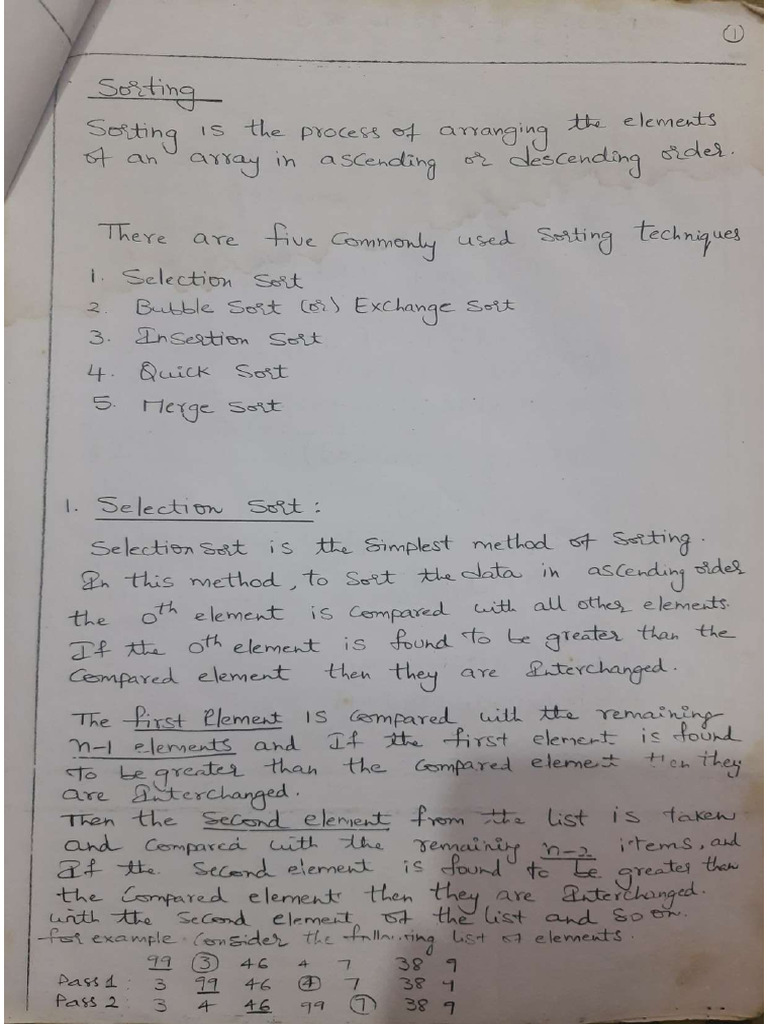 1
Sorting
Sorting is the process of arranging the elements
of an array in ascending or descending order.
There are five commonly used sorting techniques
1. Selection Sort
2. Bubble Sort (or) Exchange Sort
3. Insertion Sort
4. Quick Sort
5. Merge Sort
1. Selection Sort :
Selection Sort is the simplest method of sorting.
In this method, to sort the data in ascending order
the 0th element is compared with all other elements.
If the 0th element is found to be greater than the
compared element then they are Interchanged.
The first Element is compared with the remaining
n-1 elements and If the first element is found
to be greater than the compared element then they
are Interchanged.
Then the second element from the list is taken
and compared with the remaining n-2 items, and
If the second element is found to be greater than
the compared element then they are Interchanged.
with the second element of the list and so on.
for example. Consider the following list of elements.
99 3 46 4 7 38 9
Pass 1 : 3 99 46 4 7 38 9
Pass 2 : 3 4 46 99 7 38 9